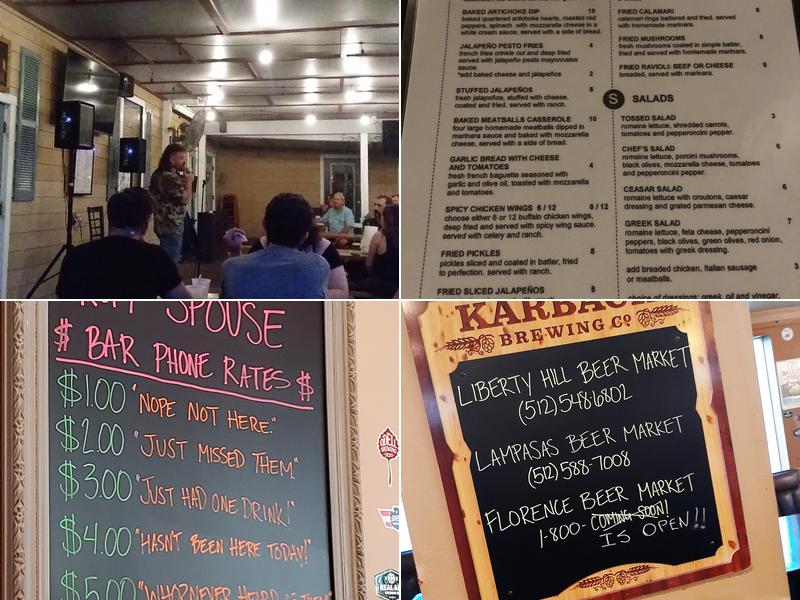 BAKED ARTICHOKE DIP 10
baked quartered artichoke hearts, roasted red
peppers, spinach with mozzarella cheese in a
white cream sauce, served with a side of bread.
JALAPEÑO PESTO FRIES 4
french fries crinkle cut and deep fried
served with jalapeño pesto mayonnaise
sauce.
*add baked cheese and jalapeños 2
STUFFED JALAPEÑOS 8
fresh jalapeños, stuffed with cheese,
coated and fried. served with ranch.
BAKED MEATBALLS CASSEROLE 10
four large homemade meatballs dipped in
marinara sauce and baked with mozzarella
cheese, served with a side of bread.
GARLIC BREAD WITH CHEESE
AND TOMATOES 4
fresh french baguette seasoned with
garlic and olive oil, toasted with mozzarella
and tomatoes.
SPICY CHICKEN WINGS 6 / 12 6 / 12
choose either 6 or 12 buffalo chicken wings,
deep fried and served with spicy wing sauce.
served with celery and ranch.
FRIED PICKLES 8
pickles sliced and coated in batter, fried
to perfection. served with ranch.
FRIED SLICED JALAPEÑOS 8
FRIED CALAMARI 8
calamari rings battered and fried. served
with homemade marinara.
FRIED MUSHROOMS 8
fresh mushrooms coated in simple batter,
fried and served with homemade marinara.
FRIED RAVIOLI: BEEF OR CHEESE 8
breaded, served with marinara.
S SALADS
TOSSED SALAD 3
romaine lettuce, shredded carrots,
tomatoes and pepperoncini pepper.
CHEF'S SALAD 6
romaine lettuce, porcini mushrooms,
black olives, mozzarella cheese, tomatoes
and pepperoncini pepper.
CEASAR SALAD 6
romaine lettuce with croutons, caesar
dressing and grated parmesan cheese.
GREEK SALAD 7
romaine lettuce, feta cheese, pepperoncini
peppers, black olives, green olives, red onion,
tomatoes with greek dressing.
add breaded chicken, Italian sausage 3
or meatballs.
choice of dressings: greek, oil and vinegar,
SPOUSE
$ BAR PHONE RATES $
$1.00 "NOPE NOT HERE."
$2.00 "JUST MISSED THEM"
$3.00 "JUST HAD ONE DRINK!"
$4.00 "HASN'T BEEN HERE TODAY!"
$5.00 "WHO? NEVER HEARD OF THEM"
ODELL
KARBACH
BREWING CO.
LIBERTY HILL BEER MARKET
(512) 548-6802
LAMPASAS BEER MARKET
(512) 588-7008
FLORENCE BEER MARKET
1-800-COMING SOON!
IS OPEN!!